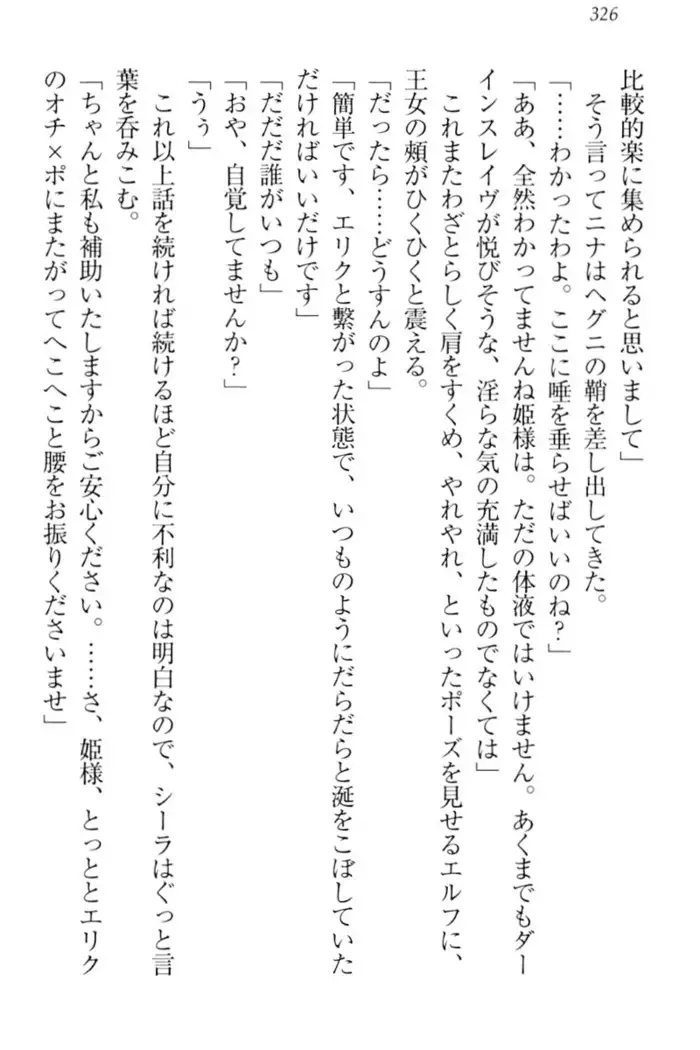 326
比較的楽に集められると思いまして」
　そう言ってニナはヘグニの鞘を差し出してきた。
「……わかったわよ。ここに唾を垂らせばいいのね？」
「ああ、全然わかってませんね姫様は。ただの体液ではいけません。あくまでもダー
インスレイヴが悦びそうな、淫らな気の充満したものでなくては」
　これまたわざとらしく肩をすくめ、やれやれ、といったポーズを見せるエルフに、
王女の頬がひくひくと震える。
「だったら……どうすんのよ」
「簡単です、エリクと繋がった状態で、いつものようにだらだらと涎をこぼしていた
だければいいだけです」
「だだだ誰がいつも」
「おや、自覚してませんか？」
「うぅ」
　これ以上話を続ければ続けるほど自分に不利なのは明白なので、シーラはぐっと言
葉を呑みこむ。
「ちゃんと私も補助いたしますからご安心ください。……さ、姫様、とっととエリク
のオチ×ポにまたがってへこへこと腰をお振りくださいませ」